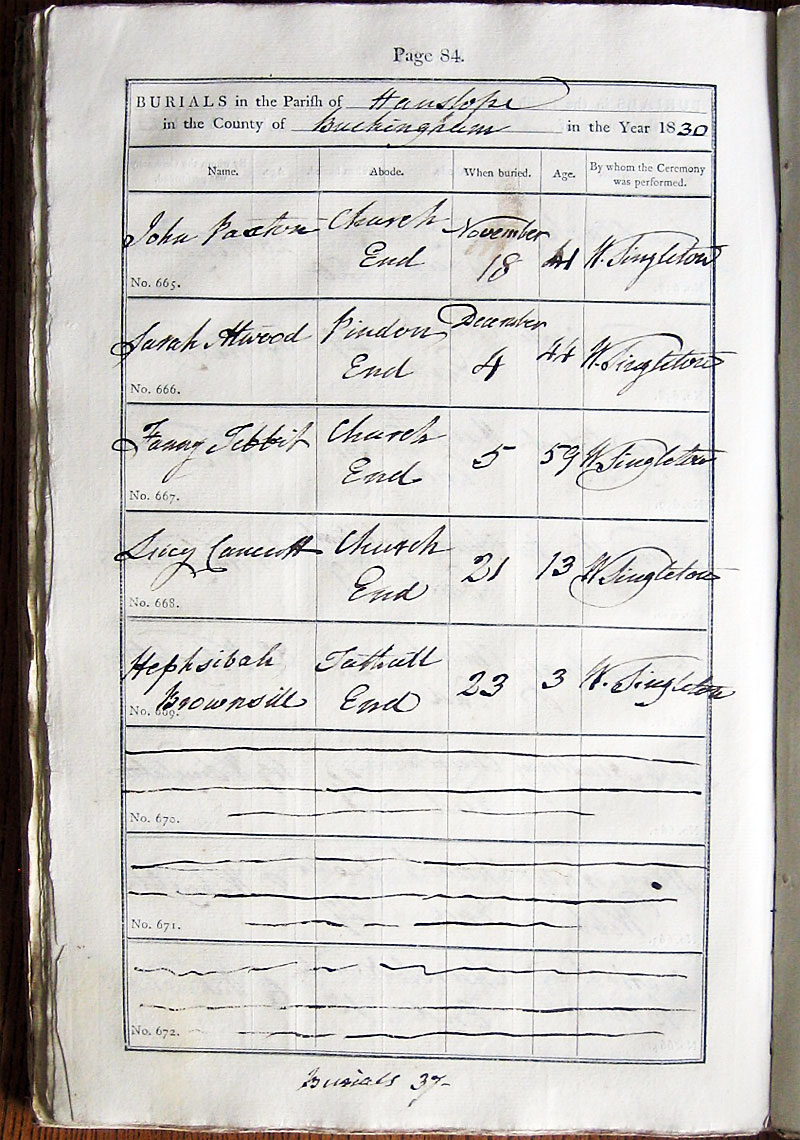 Page 84.
BURIALS in the Parish of Hanslope
in the County of Buckingham in the Year 1830
Name. Abode. When buried. Age. By whom the Ceremony was performed.
John Paxton Church End November 18 41 W. Singleton
No. 665.
Sarah Atwood Pindon End December 4 44 W. Singleton
No. 666.
Fanny Tebbit Church End 5 59 W. Singleton
No. 667.
Lucy Church End 21 13 W. Singleton
No. 668.
Hephsibah Brownsill Tathall End 23 3 W. Singleton
No. 669.
No. 670.
No. 671.
No. 672.
Burials 37-